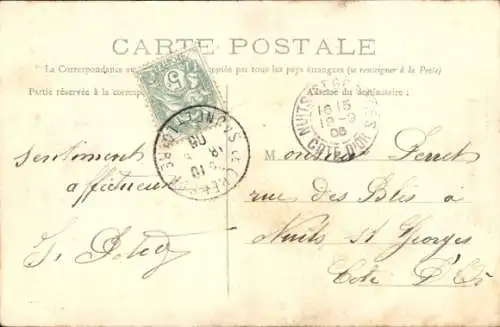 CARTE POSTALE
La Correspondance au par tous les pays étrangers (se renseigner à la Poste)
Partie réservée à la corresp Adresse du destinataire:
5
NUITS
16 15
18-9
06
COTE D'OR
SAONE ET LOIRE
18
06
sentiment
affectueux
Monsieur Perret
rue des Blés à
Nuits St Georges
Cote D'Or